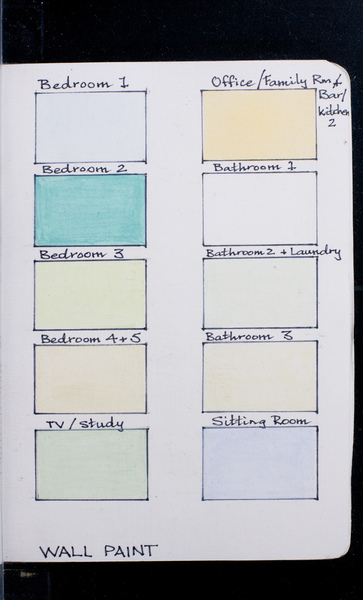 Bedroom 1
Office/Family Rm +
Bar/
kitchen
2
Bedroom 2
Bathroom 1
Bedroom 3
Bathroom 2 + Laundry
Bedroom 4+5
Bathroom 3
TV / Study
Sitting Room
WALL PAINT